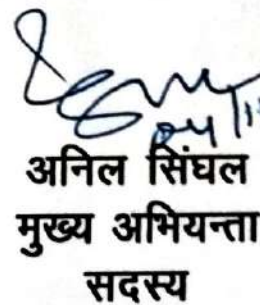 04/11
अनिल सिंघल
मुख्य अभियन्ता
सदस्य